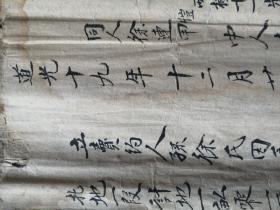 同人徐重
中人
道光十九年十二月廿
立賣約人孫徐氏因
北地一段計地一畝